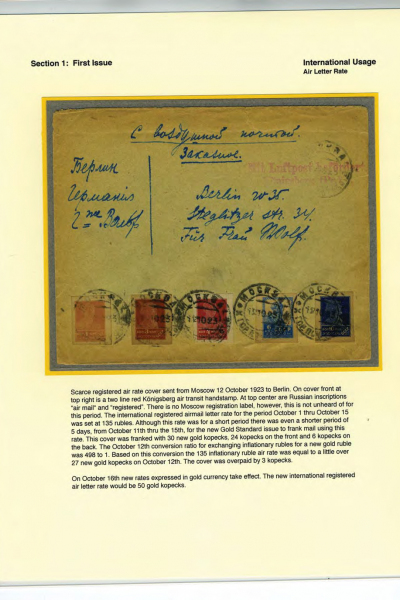 Section 1: First Issue
International Usage
Air Letter Rate
С воздушной почтой.
Заказное.
Берлин
Германия
Berlin W 35.
Steglitzer str. 34.
Für Frau Wolf.
МОСКВА
Scarce registered air rate cover sent from Moscow 12 October 1923 to Berlin. On cover front at
top right is a two line red Königsberg air transit handstamp. At top center are Russian inscriptions
"air mail" and "registered". There is no Moscow registration label, however, this is not unheard of for
this period. The international registered airmail letter rate for the period October 1 thru October 15
was set at 135 rubles. Although this rate was for a short period there was even a shorter period of
5 days, from October 11th thru the 15th, for the new Gold Standard issue to frank mail using this
rate. This cover was franked with 30 new gold kopecks, 24 kopecks on the front and 6 kopecks on
the back. The October 12th conversion ratio for exchanging inflationary rubles for a new gold ruble
was 498 to 1. Based on this conversion the 135 inflationary ruble air rate was equal to a little over
27 new gold kopecks on October 12th. The cover was overpaid by 3 kopecks.
On October 16th new rates expressed in gold currency take effect. The new international registered
air letter rate would be 50 gold kopecks.